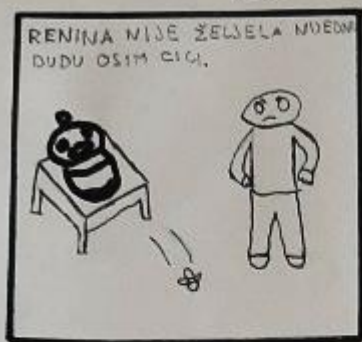 RENINA NIJE ŽELJELA NIJEDNU
DUDU OSIM CICI.